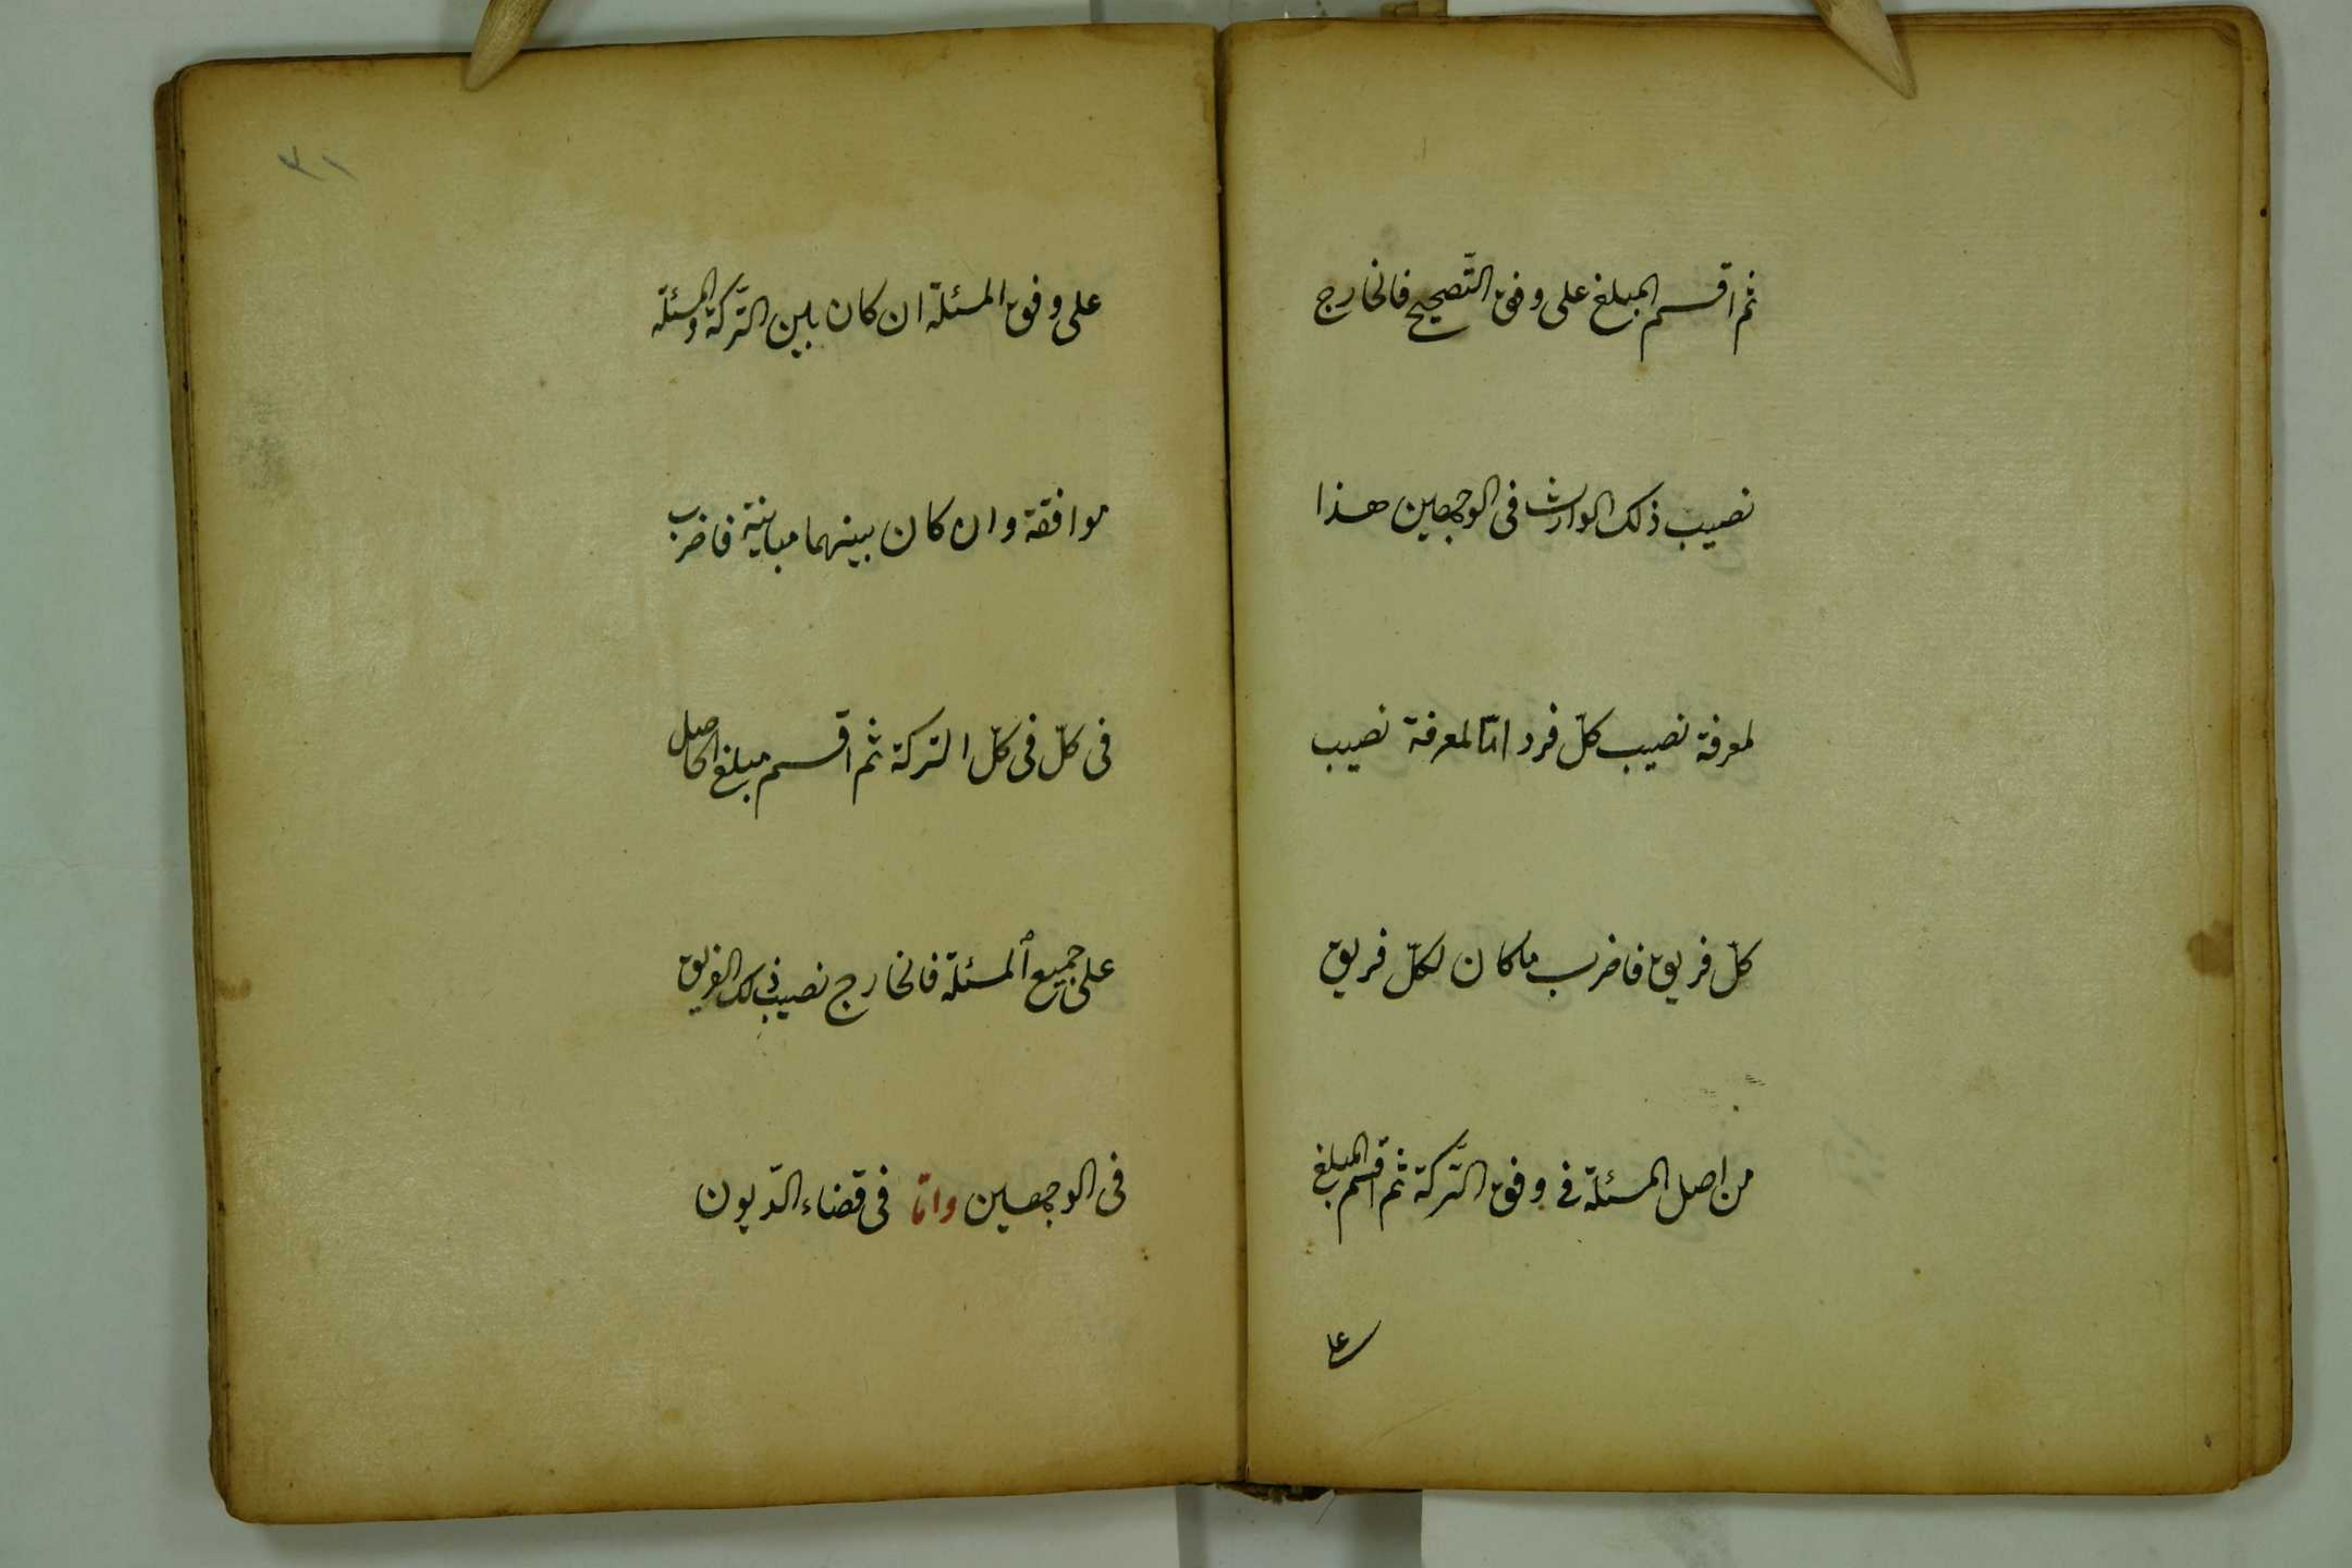 ثم اقسم المبلغ على وفق التّصحيح فالخارج
نصيب ذلك الوارث فى الوجهين هذا
لمعرفة نصيب كلّ فرد امّا لمعرفة نصيب
كلّ فريق فاضرب ما كان لكلّ فريق
من اصل المسئلة فى وفق التّركة ثم اقسم المبلغ
على
٣١
على وفق المسئلة ان كان بين التّركة والمسئلة
موافقة وان كان بينهما مباينة فاضرب
فى كلّ فى كلّ التركة ثم اقسم مبلغ الحاصل
على جميع المسئلة فالخارج نصيب ذلك الفريق
فى الوجهين وامّا فى قضاء الدّيون